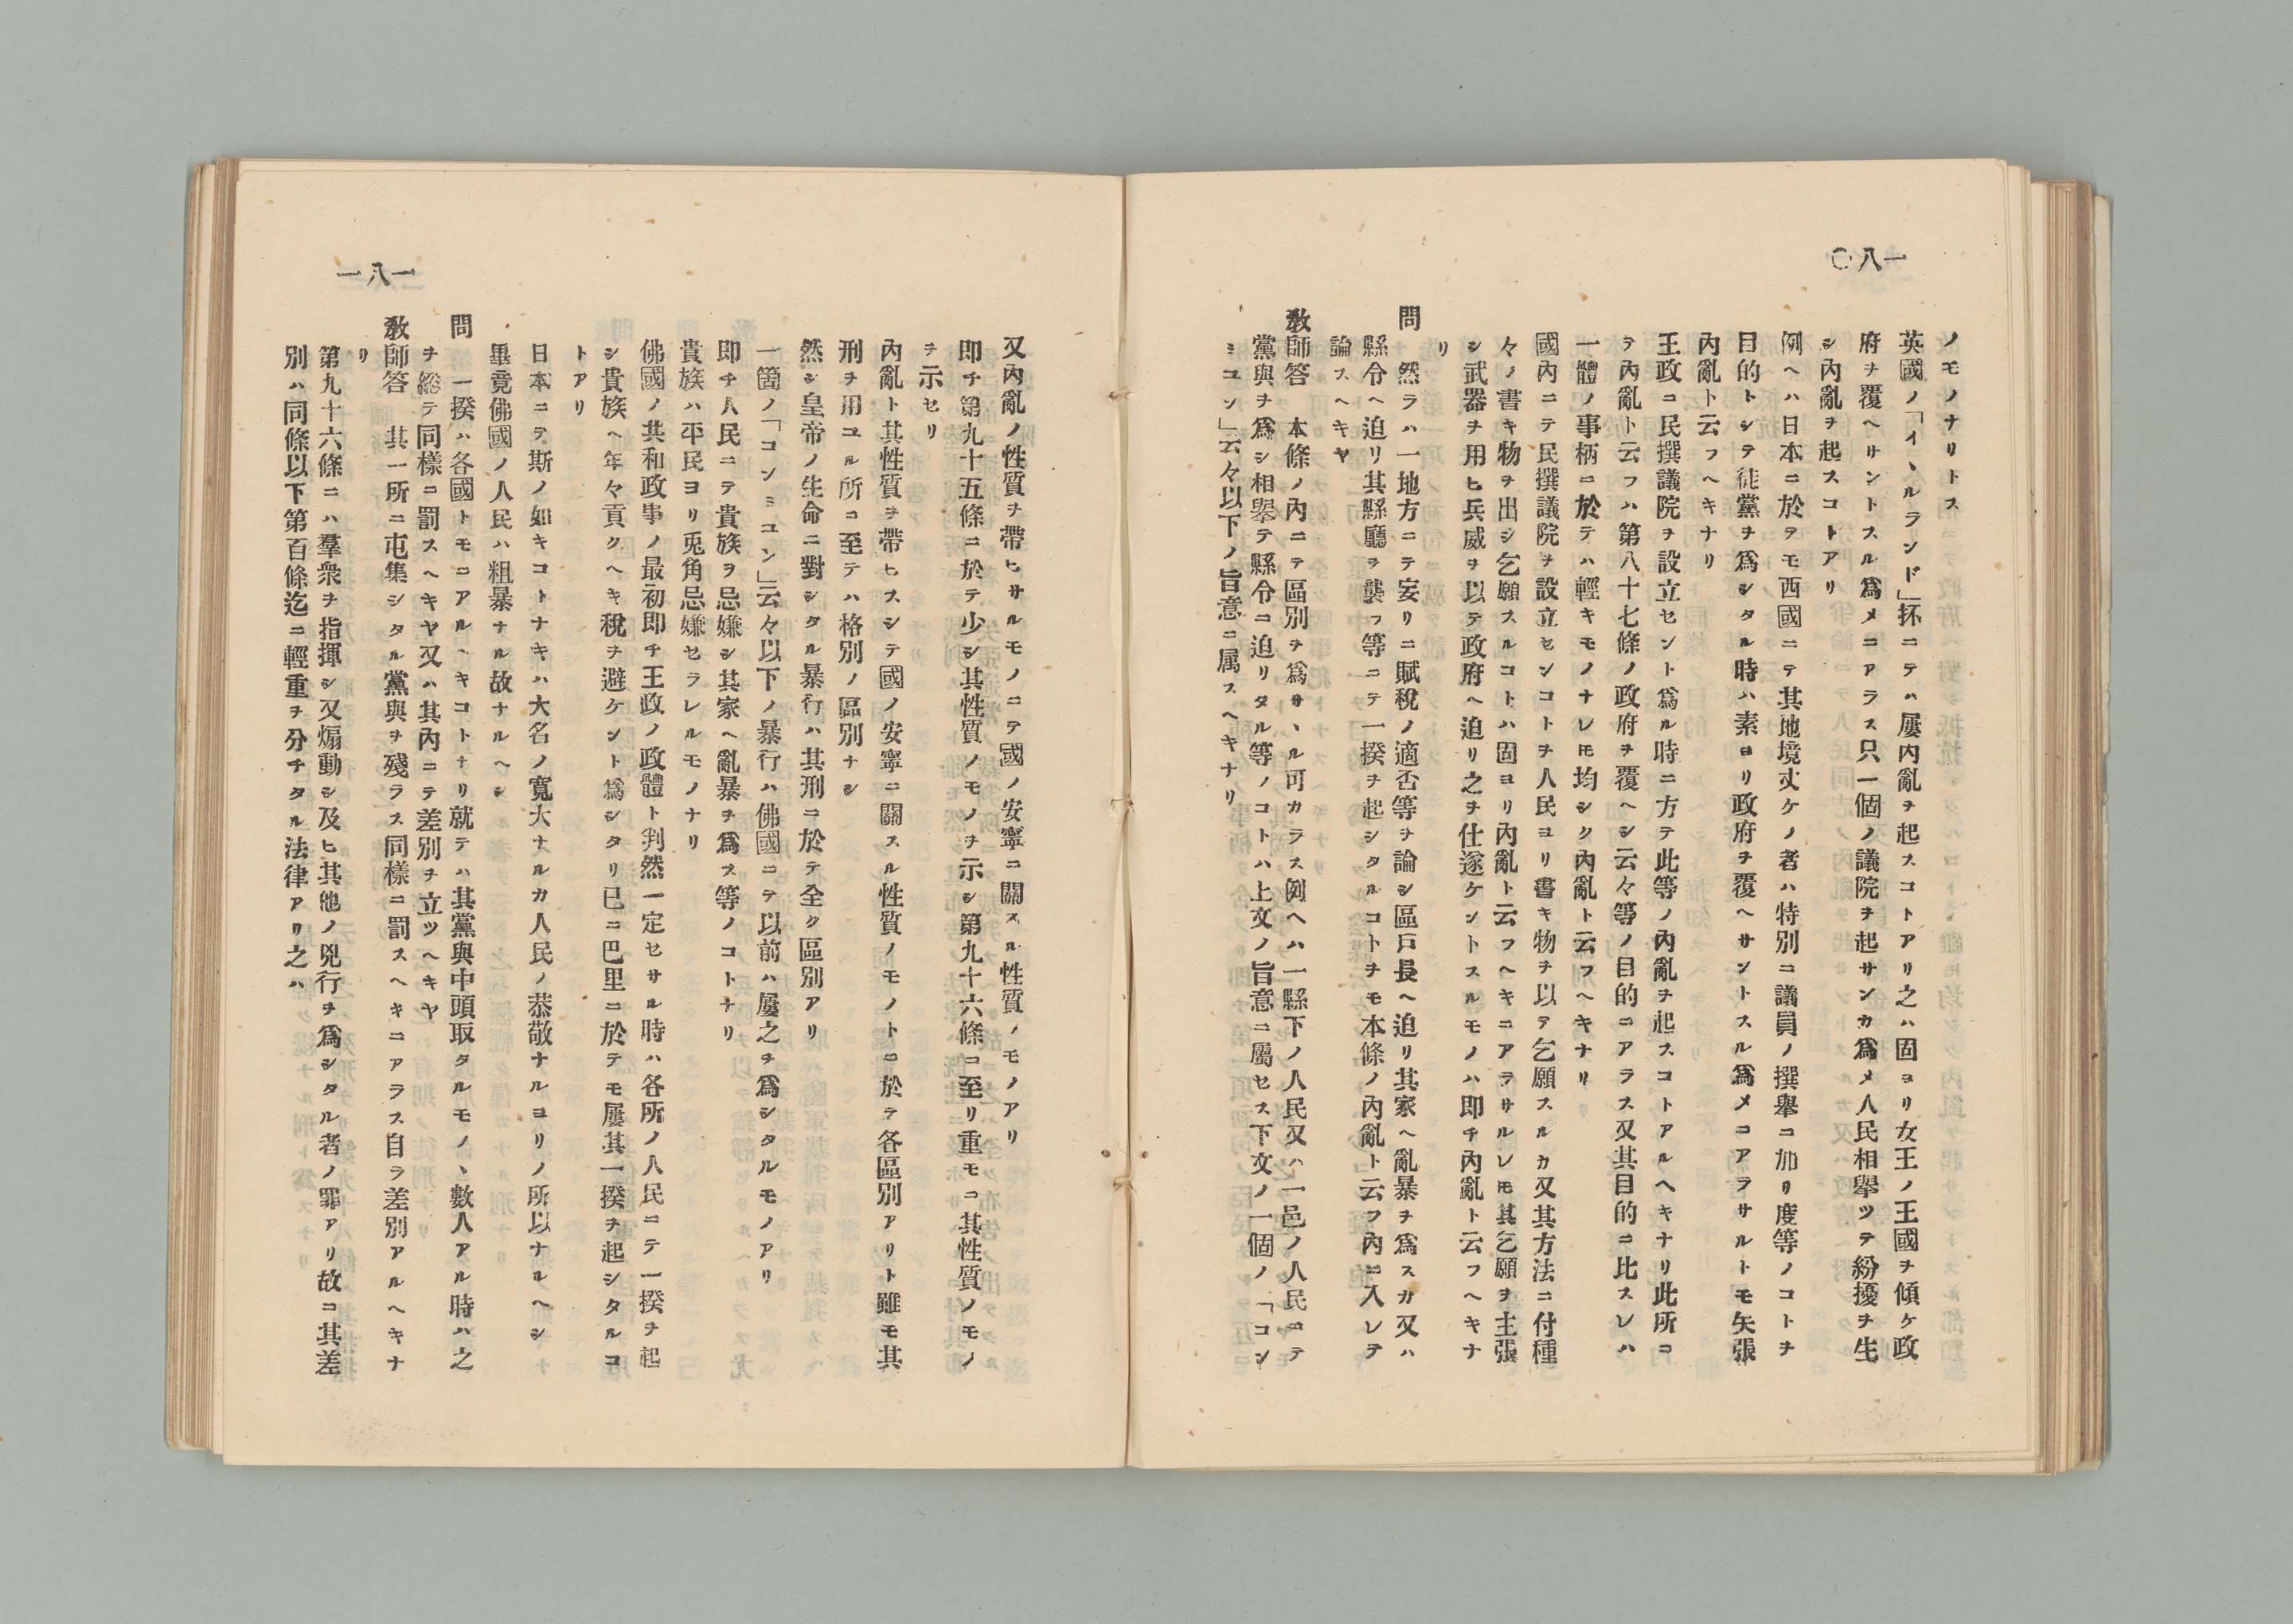 一八〇
ノモノナリトス
英國ノ「イヽルランド」抔ニテハ屢內亂ヲ起スコトアリ之ハ固ヨリ女王ノ王國ヲ傾ケ政
府ヲ覆ヘサントスル爲メニアラス只一個ノ議院ヲ起サンカ爲メ人民相擧ツテ紛擾ヲ生
シ內亂ヲ起スコトアリ
例ヘハ日本ニ於テモ西國ニテ其地境丈ケノ者ハ特別ニ議員ノ撰擧ニ加リ度等ノコトヲ
目的トシテ徒黨ヲ爲シタル時ハ素ヨリ政府ヲ覆ヘサントスル爲メニアラサルトモ矢張
內亂ト云フヘキナリ
王政ニ民撰議院ヲ設立セント爲ル時ニ方テ此等ノ內亂ヲ起スコトアルヘキナリ此所ニ
テ內亂ト云フハ第八十七條ノ政府ヲ覆ヘシ云々等ノ目的ニアラス又其目的ニ比スレハ
一體ノ事柄ニ於テハ輕キモノナレ𪜈均シク內亂ト云フヘキナリ
國內ニテ民撰議院ヲ設立センコトヲ人民ヨリ書キ物ヲ以テ乞願スルカ又其方法ニ付種
々ノ書キ物ヲ出シ乞願スルコトハ固ヨリ內亂ト云フヘキニアラサルレ𪜈其乞願ヲ主張
シ武器ヲ用ヒ兵威ヲ以テ政府ヘ迫リ之ヲ仕遂ケントスルモノハ即チ內亂ト云フヘキナ
リ
問　然ラハ一地方ニテ妄リニ賦稅ノ適否等ヲ論シ區戶長ヘ迫リ其家ヘ亂暴ヲ爲スカ又ハ
縣令ヘ迫リ其縣廳ヲ襲フ等ニテ一揆ヲ起シタルコトヲモ本條ノ內亂ト云フ內ニ入レテ
論スヘキヤ
敎師答　本條ノ內ニテ區別ヲ爲サヽル可カラス例ヘハ一縣下ノ人民又ハ一邑ノ人民ニテ
黨與ヲ爲シ相擧テ縣令ニ迫リタル等ノコトハ上文ノ旨意ニ屬セス下文ノ一個ノ「コン
ミユン」云々以下ノ旨意ニ属スヘキナリ
一八一
又內亂ノ性質ヲ帶ヒサルモノニテ國ノ安寧ニ關スル性質ノモノアリ
即チ第九十五條ニ於テ少シ其性質ノモノヲ示シ第九十六條ニ至リ重モニ其性質ノモノ
ヲ示セリ
內亂ト其性質ヲ帶ヒスシテ國ノ安寧ニ關スル性質ノモノトニ於テ各區別アリト雖モ其
刑ヲ用ユル所ニ至テハ格別ノ區別ナシ
然シ皇帝ノ生命ニ對シタル暴行ハ其刑ニ於テ全ク區別アリ
一箇ノ「コンミユン」云々以下ノ暴行ハ佛國ニテ以前ハ屢之ヲ爲シタルモノアリ
即チ人民ニテ貴族ヲ忌嫌シ其家ヘ亂暴ヲ爲ス等ノコトナリ
貴族ハ平民ヨリ兎角忌嫌セラレルモノナリ
佛國ノ其和政事ノ最初即チ王政ノ政體ト判然一定セサル時ハ各所ノ人民ニテ一揆ヲ起
シ貴族ヘ年々貢クヘキ稅ヲ避ケント爲シタリ已ニ巴里ニ於テモ屢其一揆ヲ起シタルコ
トアリ
日本ニテ斯ノ如キコトナキハ大名ノ寬大ナルカ人民ノ恭敬ナルヨリノ所以ナルヘシ
畢竟佛國ノ人民ハ粗暴ナル故ナルヘシ
問　一揆ハ各國トモニアルヘキコトナリ就テハ其黨與中頭取タルモノヽ數人アル時ハ之
ヲ總テ同樣ニ罰スヘキヤ又ハ其內ニテ差別ヲ立ツヘキヤ
敎師答　其一所ニ屯集シタル黨與ヲ殘ラス同樣ニ罰スヘキニアラス自ラ差別アルヘキナ
リ
第九十六條ニハ羣衆ヲ指揮シ又煽動シ及ヒ其他ノ兇行ヲ爲シタル者ノ罪アリ故ニ其差
別ハ同條以下第百條迄ニ輕重ヲ分チタル法律アリ之ハ